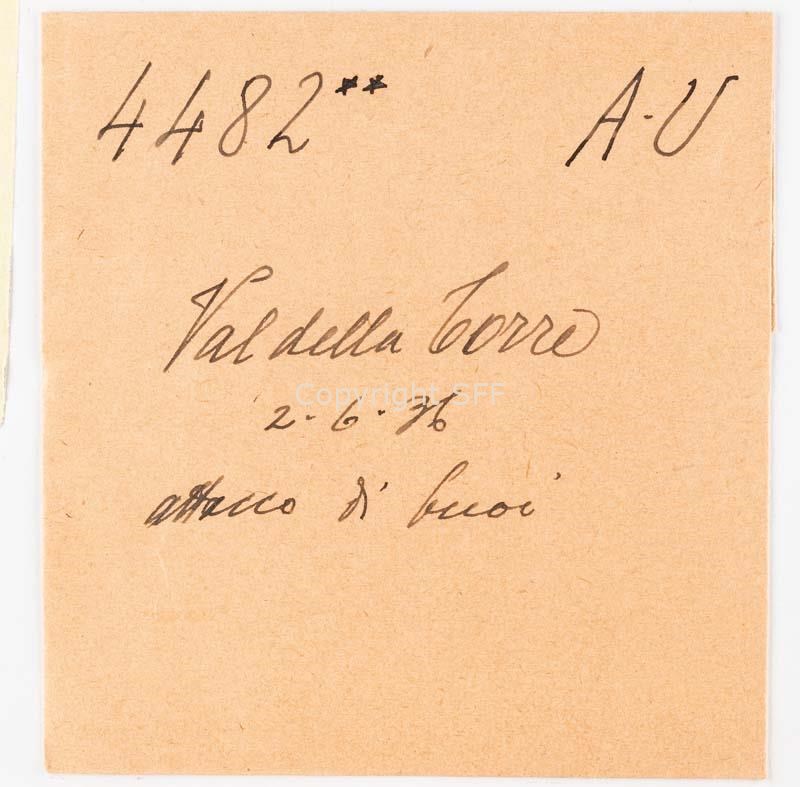 4482** A-U
Val della Torre
Copyright SFF
2-6-36
attacco di buoi